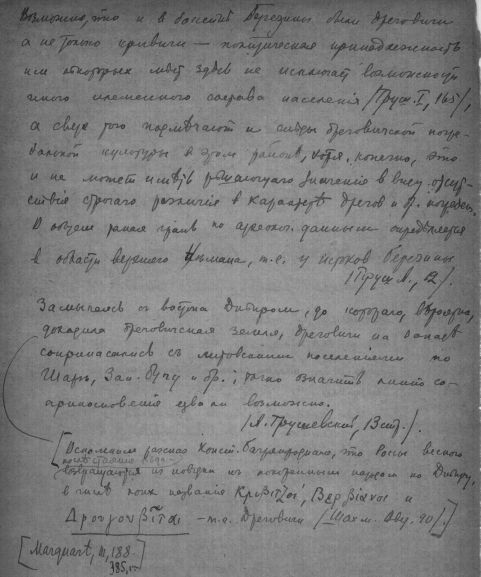 Возможно, что и в бассейне Березины были дреговичи
а не только кривичи — политическая принадлежность
некоторых мест здесь не исключает возможности
иного племенного состава населения /Груш. I, 165/,
а сверх того подмечают и следы дреговичской погре-
бальной культуры в этом районе, хотя, конечно, это
и не может иметь решающего значения в виду отсут-
ствия строгого различия в характере дрегов. и др. погребен.
В общем грань по археол. данным определяется
в области верхнего Немана, т.е. у верхов Березины
/Груш А., 12/.
Замыкаясь с востока Днепром, до которого, вероятно,
доходила дреговичская земля, дреговичи на западе
соприкасались съ литовскими поселениями по
Шаре, Зап. Бугу и др.; точно означить линию со-
прикосновения едва ли возможно.
/А. Грушевский, 13 стр./.
[Вспомним рассказ Конст. Багрянородного, что Россы весною
возвращаются из поездки к покоренным народам по Днепру,
в числе коих названы Κριβιτζοί, Βερβιανοι и
Δρουγουβῖται — т.е. Дреговичи /Шахм. 90/.]
[Marquart, III, 188.
385,